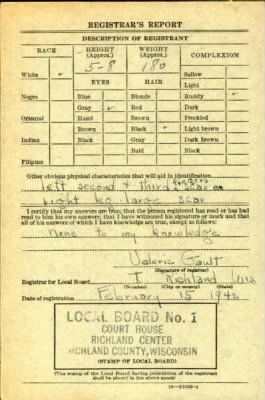 REGISTRAR'S REPORT
DESCRIPTION OF REGISTRANT
RACE HEIGHT (Approx.) WEIGHT (Approx.) COMPLEXION
5-8 180
White ✓ EYES HAIR Sallow
Light
Negro Blue Blonde Ruddy ✓
Gray ✓ Red Dark
Oriental Hazel Brown Freckled
Brown Black ✓ Light brown
Indian Black Gray Dark brown
Bald Black
Filipino
Other obvious physical characteristics that will aid in identification
left second & third fingers scar on
right leg large scar
I certify that my answers are true; that the person registered has read or has had
read to him his own answers; that I have witnessed his signature or mark and that
all of his answers of which I have knowledge are true, except as follows:
None to my knowledge
Valerie Gault
(Signature of registrar)
Registrar for Local Board I Richland Wis
(Number) (City or county) (State)
Date of registration February 15 1942
LOCAL BOARD No. 1
COURT HOUSE
RICHLAND CENTER
RICHLAND COUNTY, WISCONSIN
(STAMP OF LOCAL BOARD)
(The stamp of the Local Board having jurisdiction of the registrant
shall be placed in the above space.)